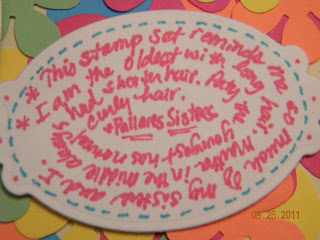 * This stamp set reminds me so much of my sisters and I.
* I am the oldest with long hair Martha in the middle always had shorter hair. the youngest has curly hair.
* Pallares Sisters
2011